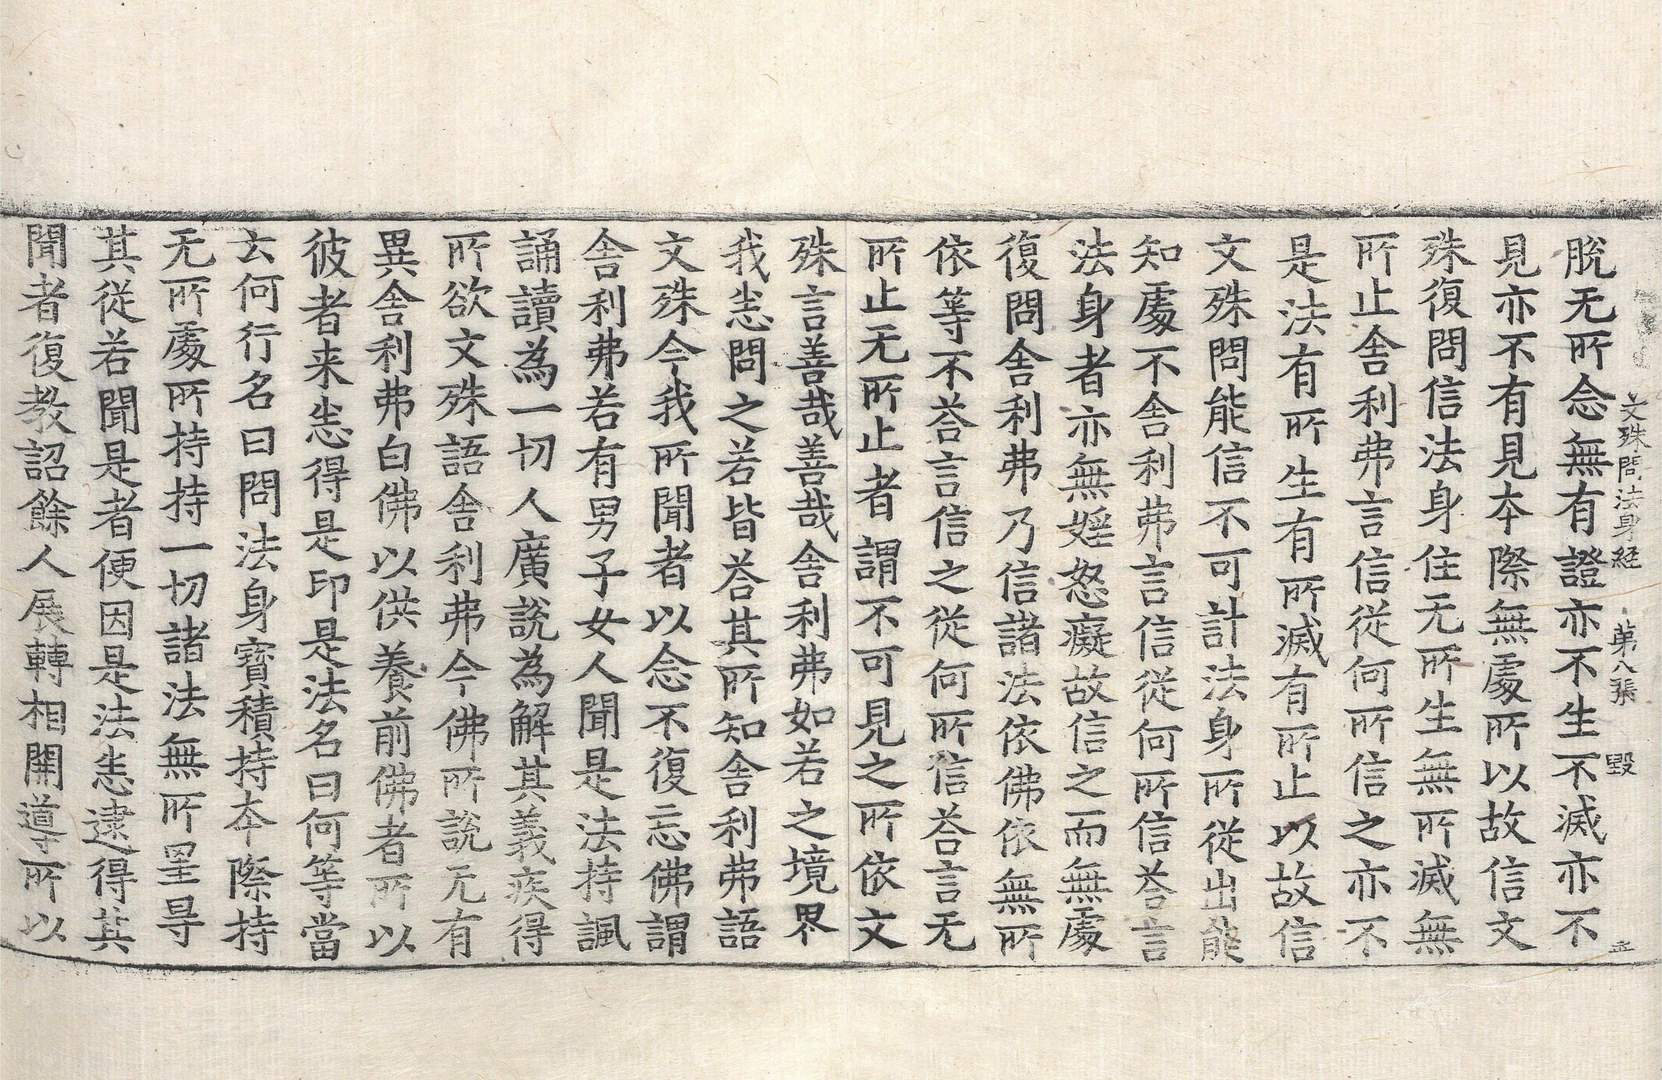 文殊問法身經　第八張　毀
脫无所念無有證亦不生不滅亦不
見亦不有見本際無處所以故信文
殊復問信法身住无所生無所滅無
所止舍利弗言信從何所信之亦不
是法有所生有所滅有所止以故信
文殊問能信不可計法身所從出能
知處不舍利弗言信從何所信荅言
法身者亦無婬怒癡故信之而無處
復問舍利弗乃信諸法依佛依無所
依等不荅言信之從何所信荅言无
所止无所止者謂不可見之所依文
殊言善哉善哉舍利弗如若之境界
我恙問之若皆荅其所知舍利弗語
文殊今我所聞者以念不復忘佛謂
舍利弗若有男子女人聞是法持諷
誦讀為一切人廣說為解其義疾得
所欲文殊語舍利弗今佛所說无有
異舍利弗白佛以供養前佛者所以
彼者来恙得是印是法名曰何等當
云何行名曰問法身寶積持本際持
无所處所持持一切諸法無所罣㝵
其從若聞是者便因是法恙逮得其
聞者復教詔餘人展轉相開導所以